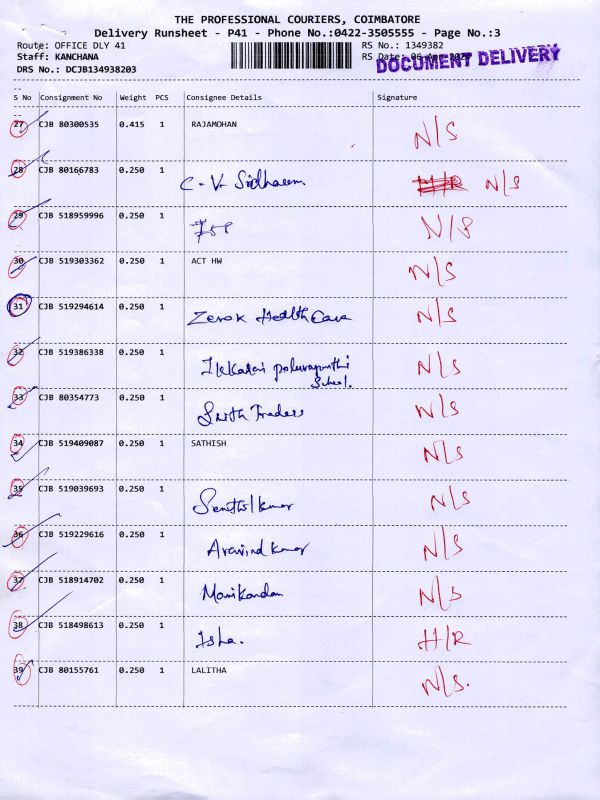 THE PROFESSIONAL COURIERS, COIMBATORE
Delivery Runsheet - P41 - Phone No.:0422-3505555 - Page No.:3
Route: OFFICE DLY 41 RS No.: 1349382
Staff: KANCHANA RS Date: 06 Apr
DOCUMENT DELIVERY
DRS No.: DCJB134938203
S No Consignment No Weight PCS Consignee Details Signature
27 CJB 80300535 0.415 1 RAJAMOHAN N/S
28 CJB 80166783 0.250 1 C-V- Sridharan N/S
29 CJB 518959996 0.250 1 N/S
30 CJB 519303362 0.250 1 ACT HW N/S
31 CJB 519294614 0.250 1 Health Care N/S
32 CJB 519386338 0.250 1 N/S
School.
33 CJB 80354773 0.250 1 Traders N/S
34 CJB 519409087 0.250 1 SATHISH N/S
35 CJB 519039693 0.250 1 Senthilkumar N/S
36 CJB 519229616 0.250 1 Aravind kumar N/S
37 CJB 518914702 0.250 1 Manikandan N/S
38 CJB 518498613 0.250 1 Isha. H/R
39 CJB 80155761 0.250 1 LALITHA N/S.